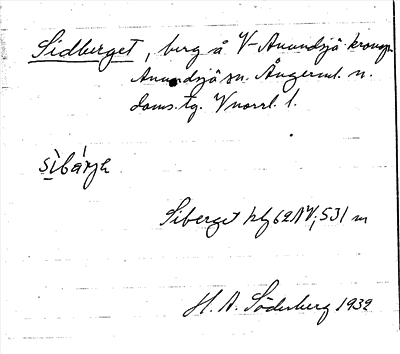 Sidberget, berg å V-Anundsjö kronop.
Anundsjö sn. Ångerml. n.
doms. tg. Vnorrl. l.
sìbárjɛ
Siberget kbl 62 NV; 531 m
H. A. Söderberg 1932